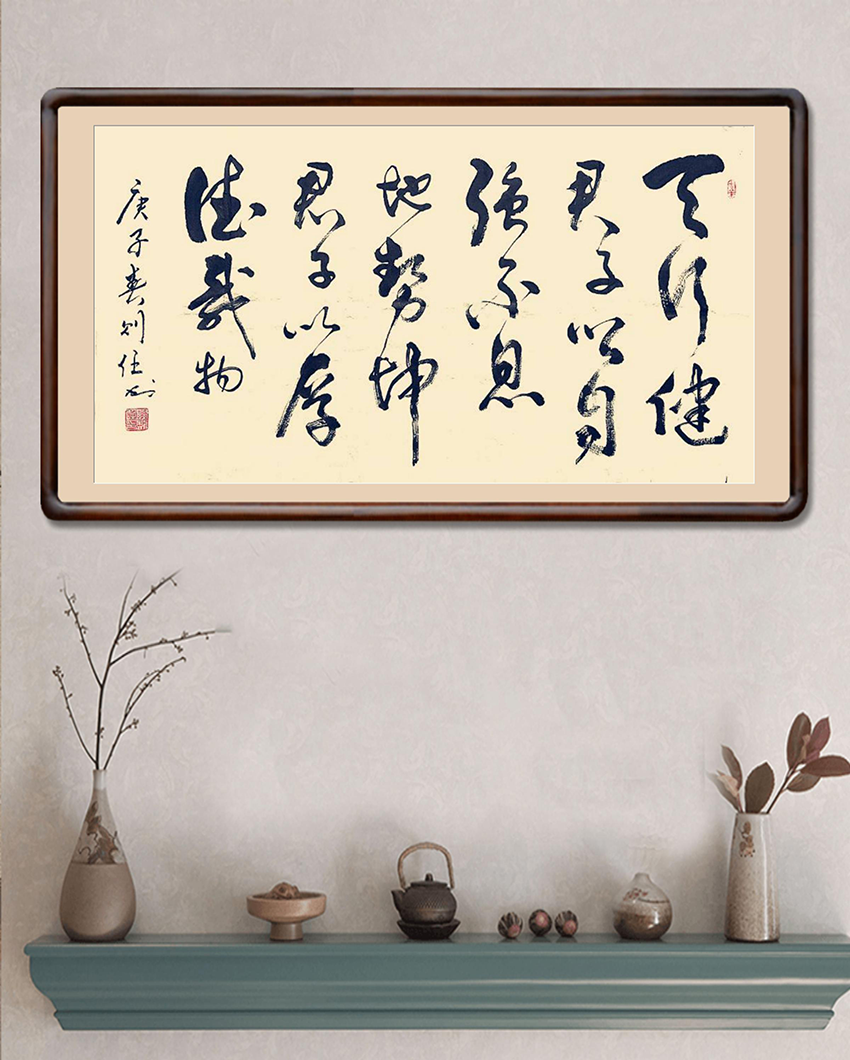 天行健
君子以自
强不息
地势坤
君子以厚
德载物
庚子春刘任